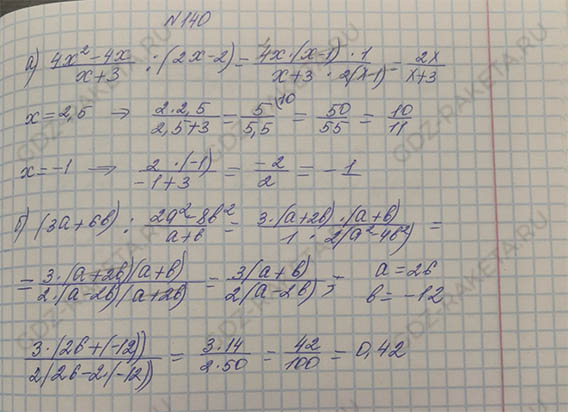 N140
а) (4x² - 4x)/(x+3) : (2x-2) = (4x·(x-1)·1)/(x+3 · 2(x-1)) = 2x/(x+3)
x = 2,5 → (2·2,5)/(2,5+3) = 5/5,5 (10 = 50/55 = 10/11
x = -1 → (2·(-1))/(-1+3) = -2/2 = -1
б) (3a+6b) : (2a²-8b²)/(a+b) = (3·(a+2b)·(a+b))/(1 · 2(a²-4b²)) =
= (3·(a+2b)(a+b))/(2·(a-2b)(a+2b)) = (3(a+b))/(2(a-2b)) ; a = 26
b = -12
(3·(26+(-12)))/(2(26-2·(-12))) = (3·14)/(2·50) = 42/100 = 0,42
GDZ-RAKETA.RU